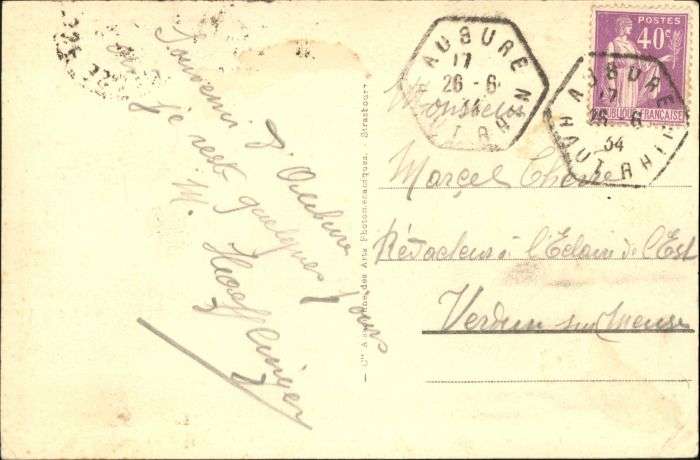 Souvenir d'Aubure
où je reste quelques jours
M.
AUBURE
17
26 - 6
34
HAUT RHIN
POSTES
40c
RÉPUBLIQUE FRANÇAISE
AUBURE
17
26 - 6
34
HAUT RHIN
des Arts Photomécaniques. - Strasbourg
Monsieur
Marcel
Rédacteur à l'Eclair de l'Est
Verdun sur Meuse